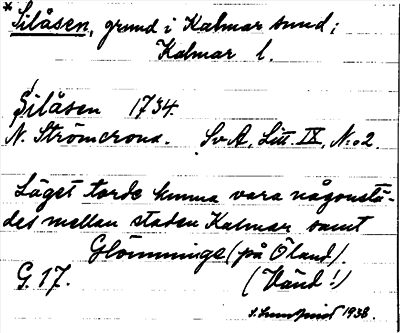 * Silåsen, grund i Kalmar sund;
Kalmar l.
Silåsen 1734.
N. Strömcrona. SvA, Litt. IX, N:o 2.
Läget torde kunna vara någonstä-
des mellan staden Kalmar samt
Glömminge (på Öland).
G. 17. (Vänd!)
1938